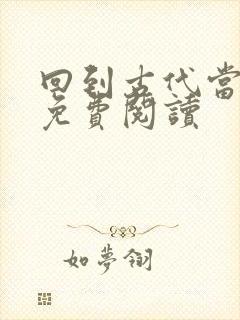 回到古代當
免費閱讀
如夢翎